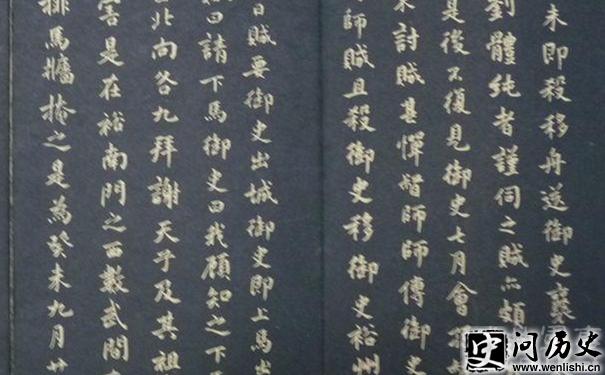 未即殺移舟送御史襄
劉體純者謹伺之賊亦頗
是後不復見御史七月會
來討賊甚憚督師師傳御史
師賊且殺御史移御史裕州
日賊要御史出城御史即上馬出
賊曰請下馬御史曰我顧知之下
北向各九拜謝天子及其祖
害是在裕南門之西數武間
排馬牆掩之是為癸未九月廿
问历史
www.wenlishi.cn